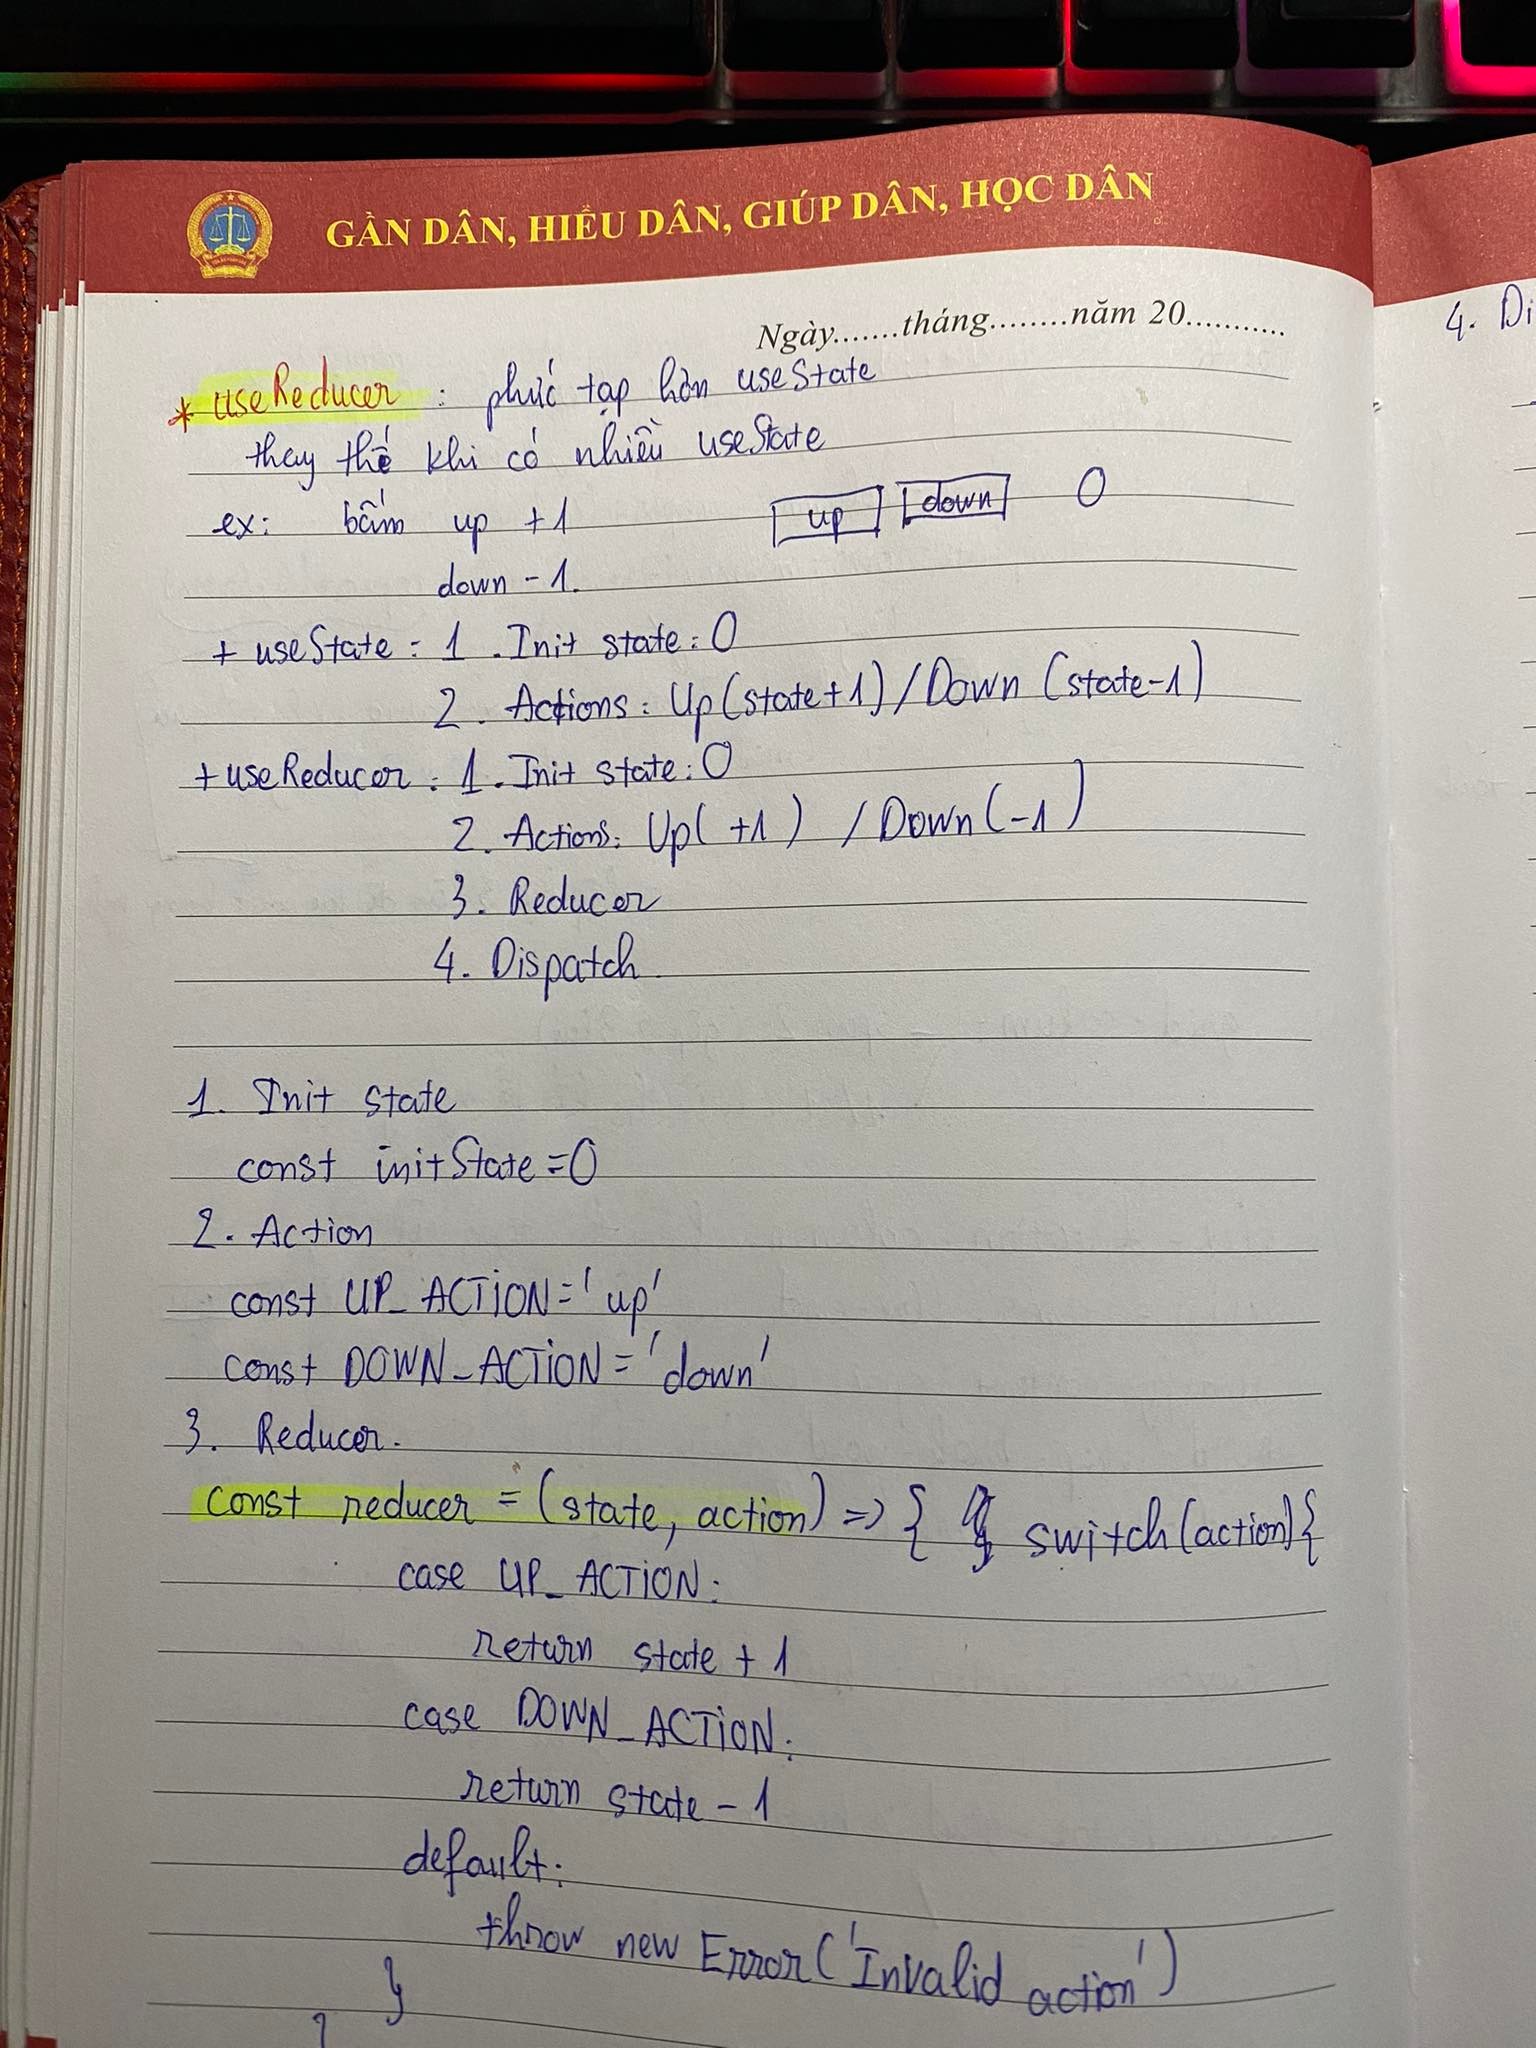 GẦN DÂN, HIỂU DÂN, GIÚP DÂN, HỌC DÂN
Ngày.......tháng........năm 20...........
* useReducer : phức tạp hơn useState
thay thế khi có nhiều useState
ex: bấm up +1 up down 0
down -1.
+ useState : 1. Init state: 0
2. Actions: Up(state+1) / Down (state-1)
+ useReducer : 1. Init state: 0
2. Actions: Up( +1) / Down(-1)
3. Reducer
4. Dispatch
1. Init state
const initState=0
2. Action
const UP_ACTION='up'
const DOWN_ACTION='down'
3. Reducer.
const reducer = (state, action) => { switch(action){
case UP_ACTION:
return state + 1
case DOWN_ACTION:
return state - 1
default:
throw new Error('Invalid action')
}
}
4. Di